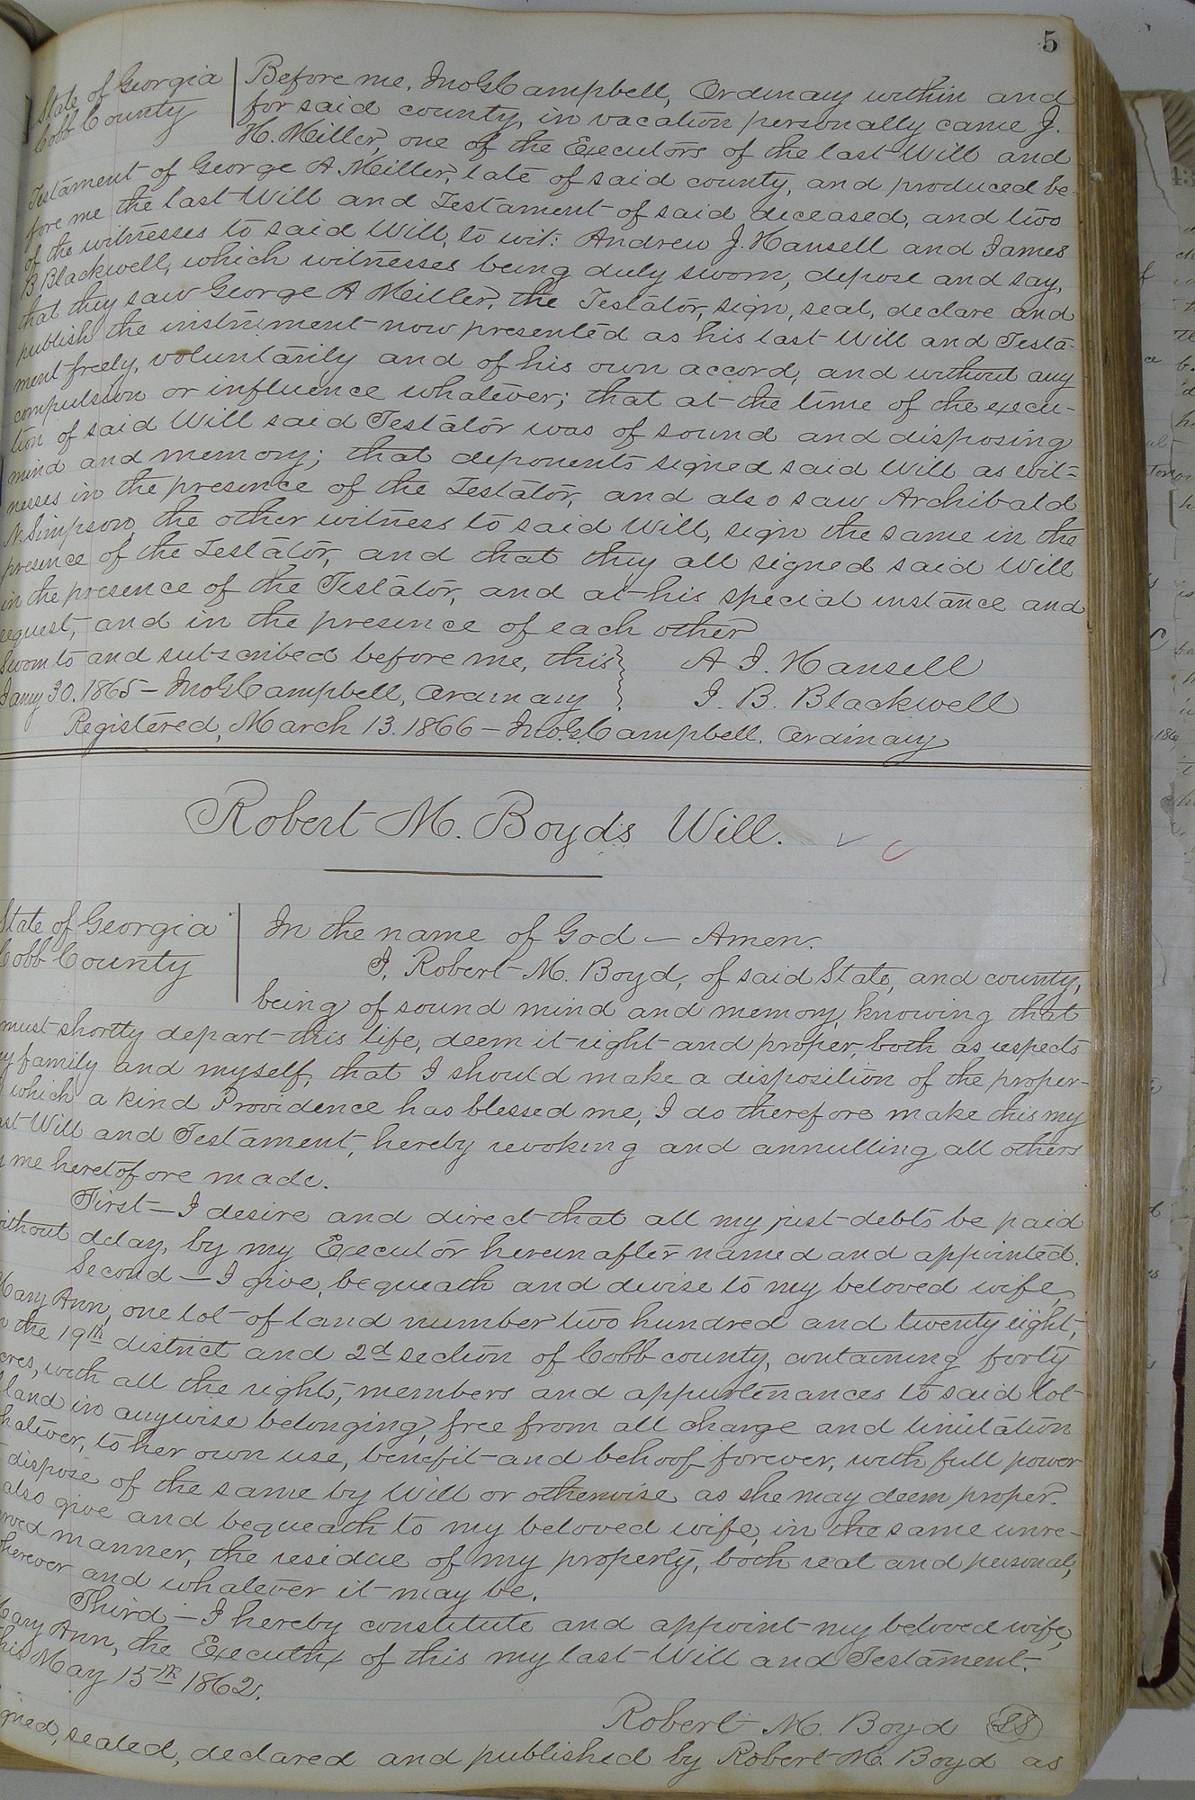 5
State of Georgia
Cobb County
Before me, Jno G Campbell, Ordinary within and
for said county, in vacation personally came J.
H. Miller, one of the Executors of the last Will and
Testament of George A Miller, late of said county, and produced be
fore me the last Will and Testament of said deceased, and two
of the witnesses to said Will, to wit: Andrew J. Hansell and James
B Blackwell, which witnesses being duly sworn, depose and say,
that they saw George A Miller, the Testator, sign, seal, declare and
publish the instrument now presented as his last Will and Testa-
ment freely, voluntarily and of his own accord, and without any
compulsion or influence whatever; that at the time of the execu-
tion of said Will said Testator was of sound and disposing
mind and memory; that deponents signed said Will as wit-
nesses in the presence of the Testator, and also saw Archibald
N. Simpson, the other witness to said Will, sign the same in the
presence of the Testator, and that they all signed said Will
in the presence of the Testator, and at his special instance and
request, and in the presence of each other
Sworn to and subscribed before me, this
Jany 30. 1865 - Jno G Campbell, Ordinary
A J. Hansell
J. B. Blackwell
Registered, March 13. 1866 - Jno. G. Campbell. Ordinary
Robert M. Boyd's Will.
State of Georgia
Cobb County
In the name of God - Amen.
I, Robert M. Boyd, of said State, and county,
being of sound mind and memory, knowing that
must shortly depart this life, deem it right and proper, both as respects
my family and myself, that I should make a disposition of the proper-
which a kind Providence has blessed me, I do therefore make this my
last Will and Testament, hereby revoking and annulling all others
me heretofore made.
First - I desire and direct that all my just debts be paid
without delay, by my Executor hereinafter named and appointed.
Second - I give, bequeath and devise to my beloved wife,
Mary Ann, one lot of land number two hundred and twenty eight,
the 19th district and 2d section of Cobb county, containing forty
acres, with all the rights, members and appurtenances to said lot
land in anywise belonging, free from all charge and limitation
whatever, to her own use, benefit and behoof forever, with full power
dispose of the same by Will or otherwise as she may deem proper.
also give and bequeath to my beloved wife, in the same unre-
served manner, the residue of my property, both real and personal,
wherever and whatever it may be.
Third - I hereby constitute and appoint my beloved wife,
Mary Ann, the Executrix of this my last Will and Testament.
this May 15th 1862.
Robert M. Boyd SS
signed, sealed, declared and published by Robert M. Boyd as